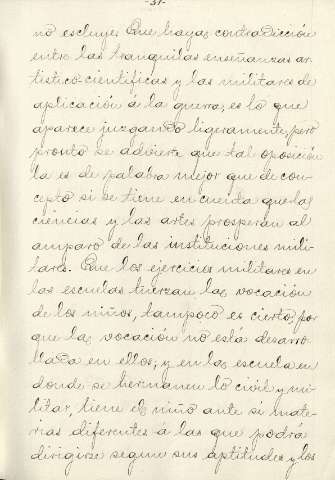 -37-
no escluye. Que haya contradicción
entre las tranquilas enseñanzas ar-
tístico-científicas y las militares de
aplicación á la guerra, es lo que
aparece juzgando ligeramente, pero
pronto se advierte que tal oposición
la es de palabra mejor que de con-
cepto si se tiene en cuenta que las
ciencias y las artes prosperan al
amparo de las instituciones mili-
tares. Que los ejercicios militares en
las escuelas tuerzan la vocación
de los niños, tampoco es cierto; por
que la vocación no está desarro-
llada en ellos; y en las escuela en
donde se hermanen lo civil y mi-
litar, tiene el niño ante si mate-
rias diferentes á las que podrá
dirigirse segun sus aptitudes y los